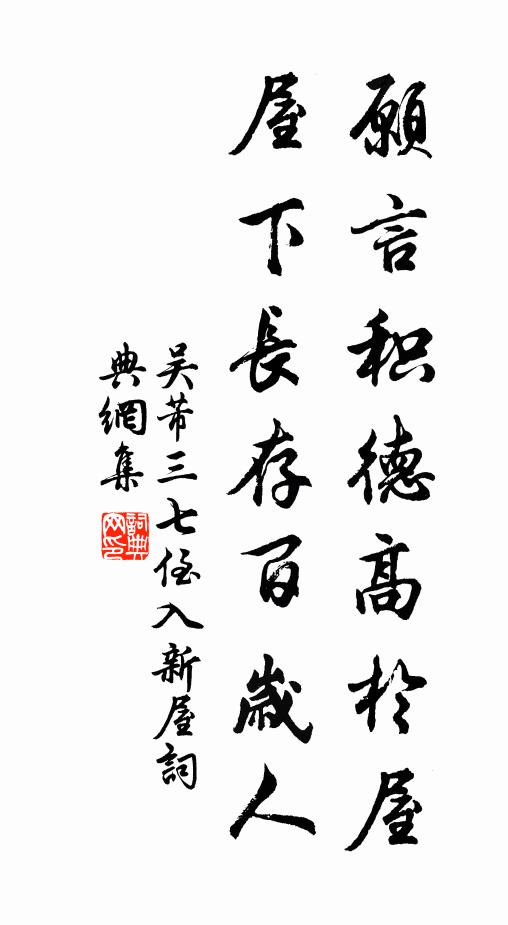 願言积德高於屋
屋下長存百歲人
吴芾三七侄入新屋詞
典網集
詞典網印